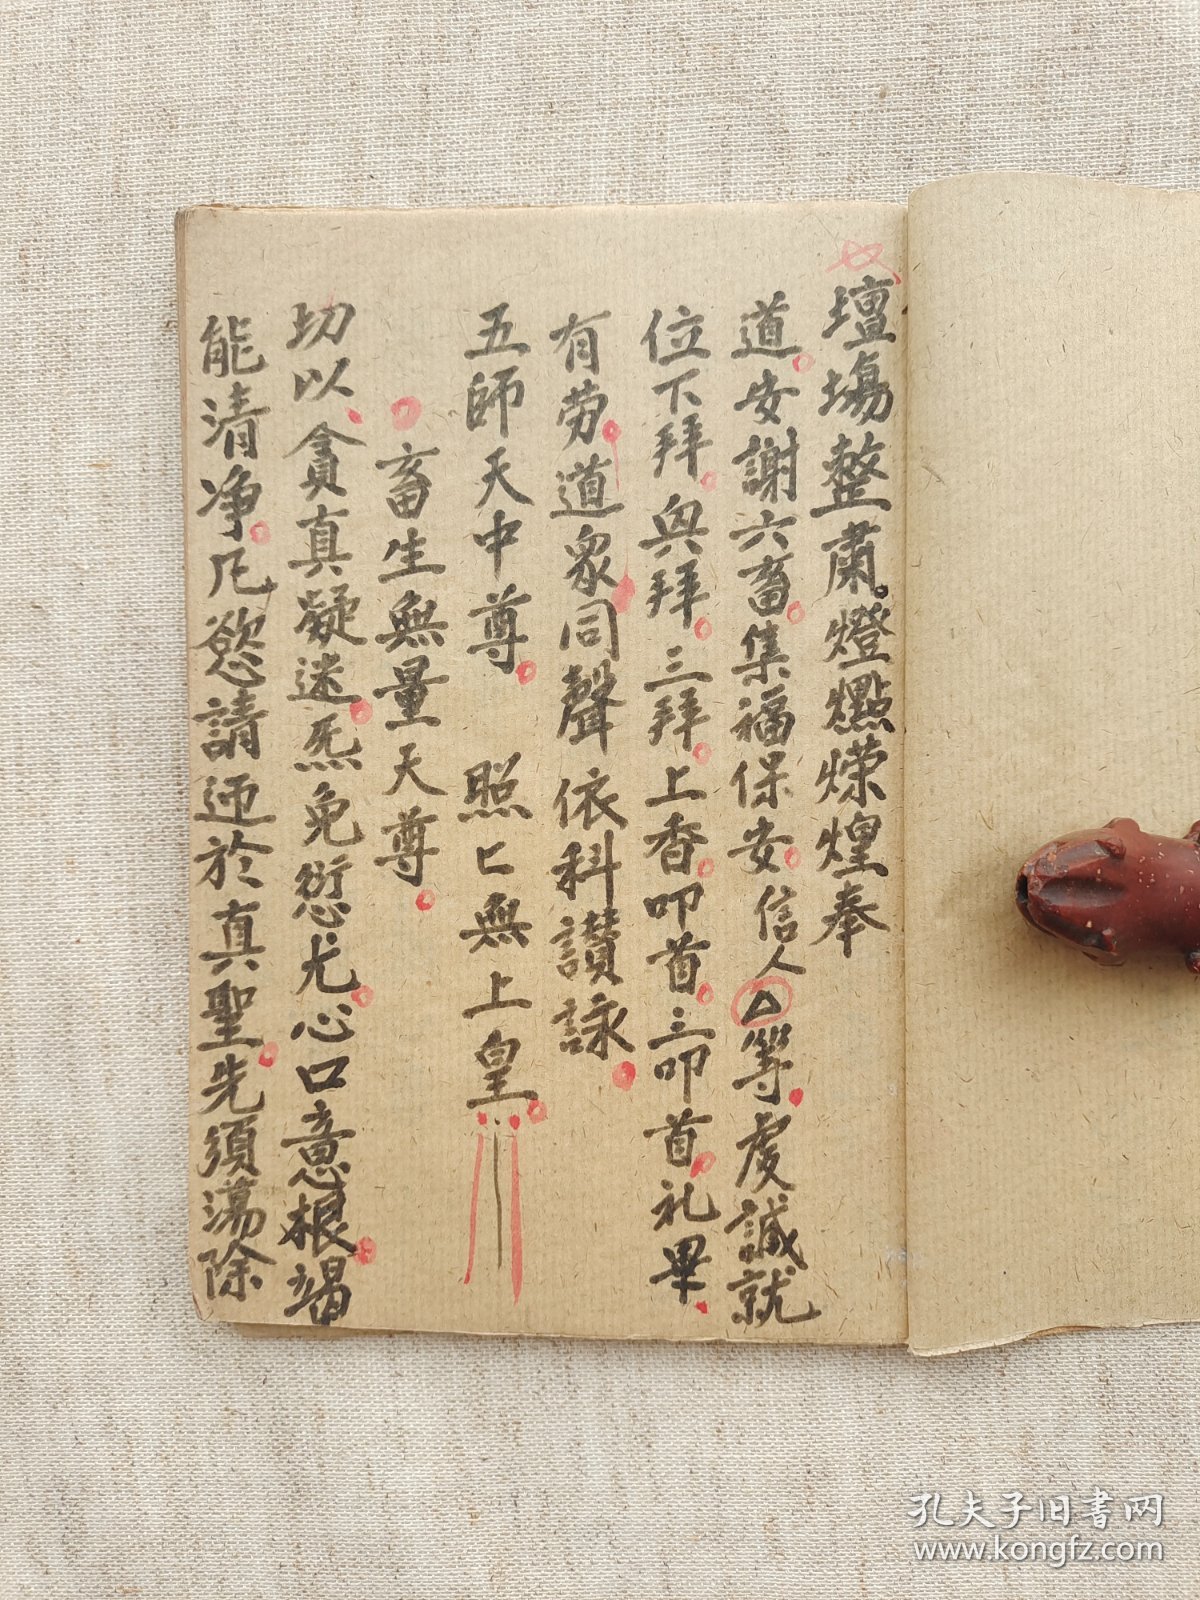 壇塲整肅。燈爥煠煌奉
道。安謝六畜。集福保安。信人厶等。虔誠就
位下拜。興拜。三拜。上香。叩首。三叩首。礼畢
有劳。道衆同聲依科讃詠。
五師天中尊。 照匕無上皇。
畜生無量天尊。
切以、貪真凝迷。炁免愆尤。心口意根。竭
能清净。凡慾請迊於真聖。先須蕩除
孔夫子旧书网
www.kongfz.com